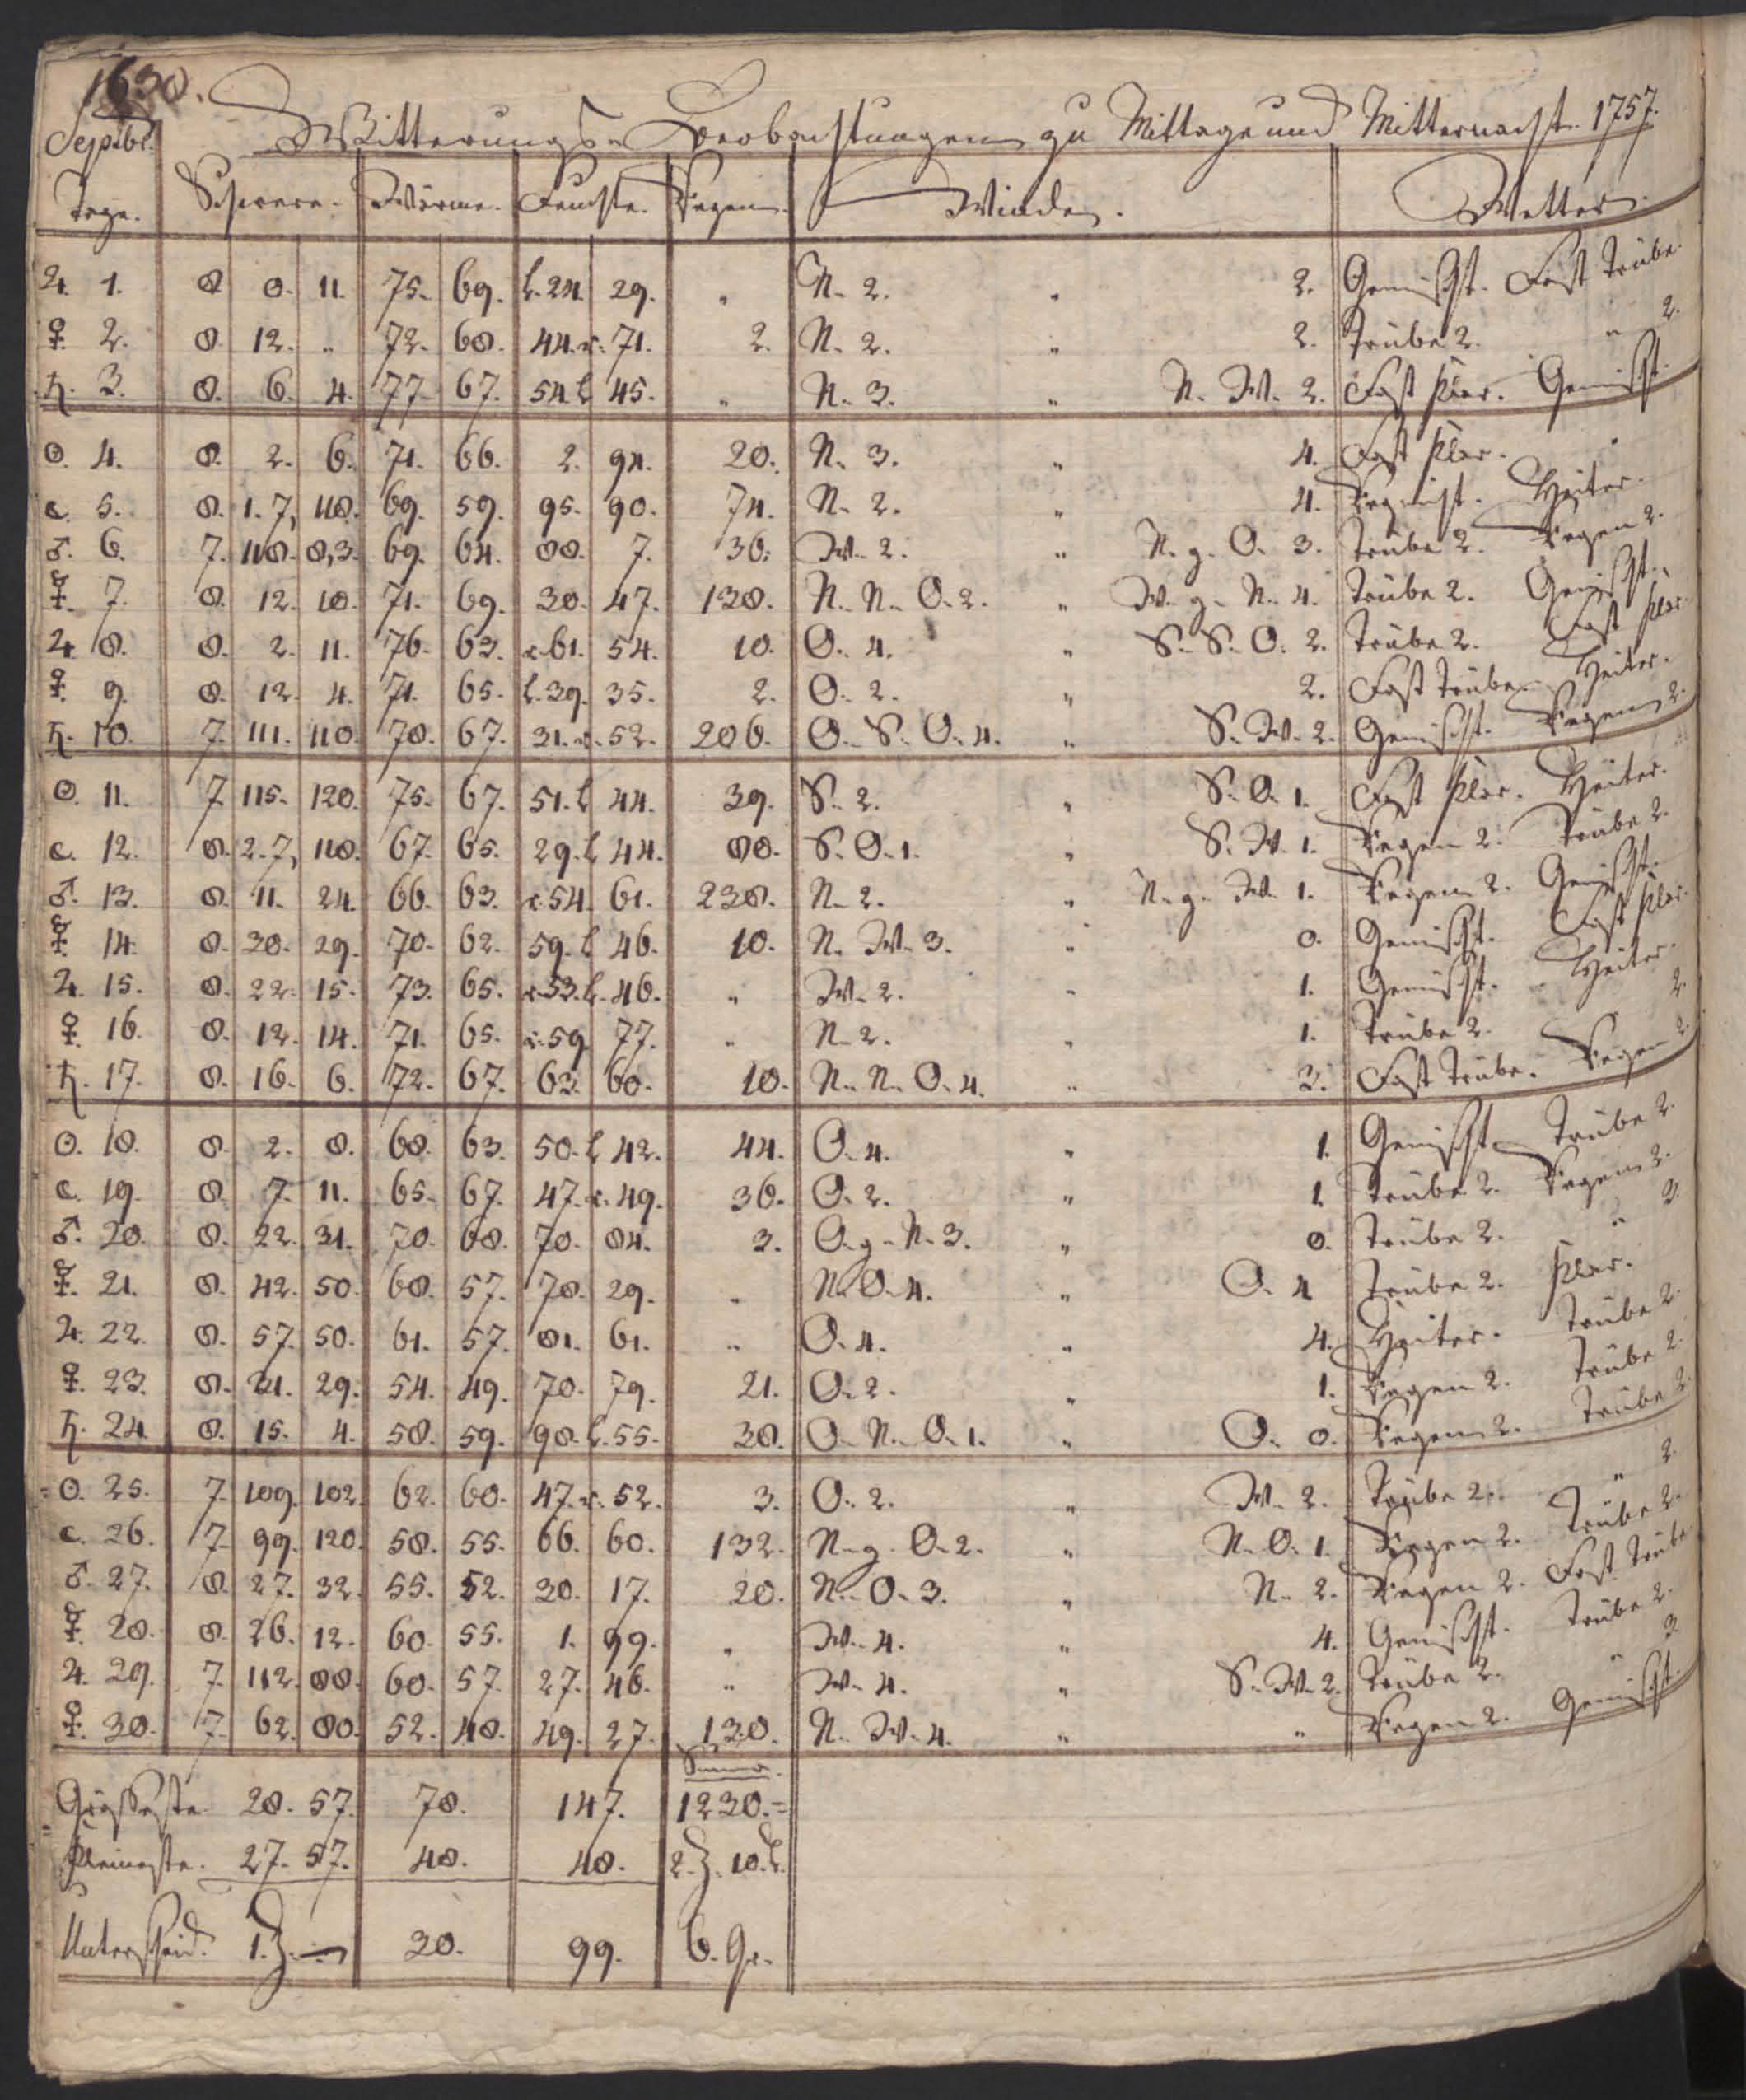 1630.
Septbr. Witterungs-Beobachtungen zu Mittage und Mitternacht. 1757.
Tage. Schwere. Wärme. Feuchte. Regen. Winde. Wetter.
♃. 1. 8 0. 11. 75. 69. l. 24. 29. " N. 2. " 2. Gemischt. Fast trübe.
♀. 2. 8. 12. " 72. 68. 44. r. 71. 2. N. 2. " 2. Trübe 2. " 2.
♄. 3. 8. 6. 4. 77. 67. 54. l 45. " N. 3. " N. W. 2. Fast klar. Gemischt.
☉. 4. 8. 2. 6. 71. 66. 2. 94. 20. N. 3. " 4. Fast klar. "
☾. 5. 8. 1. 7, 118. 69. 59. 95. 90. 74. N. 2. " 4. Heiter.
♂. 6. 7. 118. 8,3. 69. 64. 88. 7. 36. W. 2. " N. g. O. 3. Trübe 2. Regen 2.
☿. 7. 8. 12. 10. 71. 69. 30. 47. 138. N. N. O. 2. " W. g. N. 4. Trübe 2. Gemischt.
♃. 8. 8. 2. 11. 76. 63. r. 61. 54. 10. O. 4. " S. S. O. 2. Trübe 2. Fast klar.
♀. 9. 8. 12. 4. 71. 65. l. 39. 35. 2. O. 2. " 2. Fast trübe. Heiter.
♄. 10. 7. 111. 110. 78. 67. 31. r. 52. 206. O. S. O. 4. " S. W. 2. Gemischt. Regen 2.
☉. 11. 7. 115. 120. 75. 67. 51. l 44. 39. S. 2. " S. O. 1. Fast klar. Heiter.
☾. 12. 8. 2. 7, 118. 67. 65. 29. l 44. 88. S. O. 1. " S. W. 1. Regen 2. Trübe 2.
♂. 13. 8. 11. 24. 66. 63. r. 54. 61. 238. N. 2. " N. g. W. 1. Regen 2. Gemischt.
☿. 14. 8. 30. 29. 70. 62. 59. l 46. 10. N. W. 3. " 0. Gemischt. Fast klar.
♃. 15. 8. 22. 15. 73. 65. r. 53. l. 46. " W. 2. " 1. Gemischt. Heiter.
♀. 16. 8. 12. 14. 71. 65. r. 59. 77. " N. 2. " 1. Trübe 2. 2.
♄. 17. 8. 16. 6. 72. 67. 63. 60. 10. N. N. O. 4. " 3. Fast trübe. Regen 2.
☉. 18. 8. 2. 8. 68. 63. 50. l 42. 44. O. 4. " 1. Gemischt. Trübe 2.
☾. 19. 8. 7. 11. 65. 67. 47. r. 49. 36. O. 2. " 1. Trübe 2. Regen 2.
♂. 20. 8. 22. 31. 70. 68. 70. 84. 3. O. g. N. 3. " 0. Trübe 2. " 2.
☿. 21. 8. 42. 50. 68. 57. 78. 29. " N. O. 4. " O. 4. Trübe 2. Klar.
♃. 22. 8. 57. 50. 61. 57. 81. 61. " O. 4. " 4. Heiter. Trübe 2.
♀. 23. 8. 41. 29. 54. 49. 70. 79. 21. O. 2. " 1. Regen 2. Trübe 2.
♄. 24. 8. 15. 4. 58. 59. 98. l. 55. 38. O. N. O. 1. " O. 0. Regen 2. Trübe 2.
☉. 25. 7. 109. 102. 62. 60. 47. r. 52. 3. O. 2. " W. 2. Trübe 2. " 2.
☾. 26. 7. 99. 120. 58. 55. 66. 60. 132. N. g. O. 2. " N. O. 1. Regen 2. Trübe 2.
♂. 27. 8. 27. 32. 55. 52. 30. 17. 20. N. O. 3. " N. 2. Regen 2. Fast trübe.
☿. 28. 8. 26. 12. 60. 55. 1. 99. " W. 4. " 4. Gemischt. Trübe 2.
♃. 29. 7. 112. 88. 60. 57. 27. 46. " W. 4. " S. W. 2. Trübe 2. " 3.
♀. 30. 7. 62. 80. 52. 48. 49. 27. 130. N. W. 4. " " Regen 2. Gemischt.
Summa.
Grösseste. 28. 57. 78. 147. 1230.
Kleineste. 27. 57. 48. 48. 2. Z. 10. L.
Unterscheid. 1. Z. — 30. 99. 6. Gr.